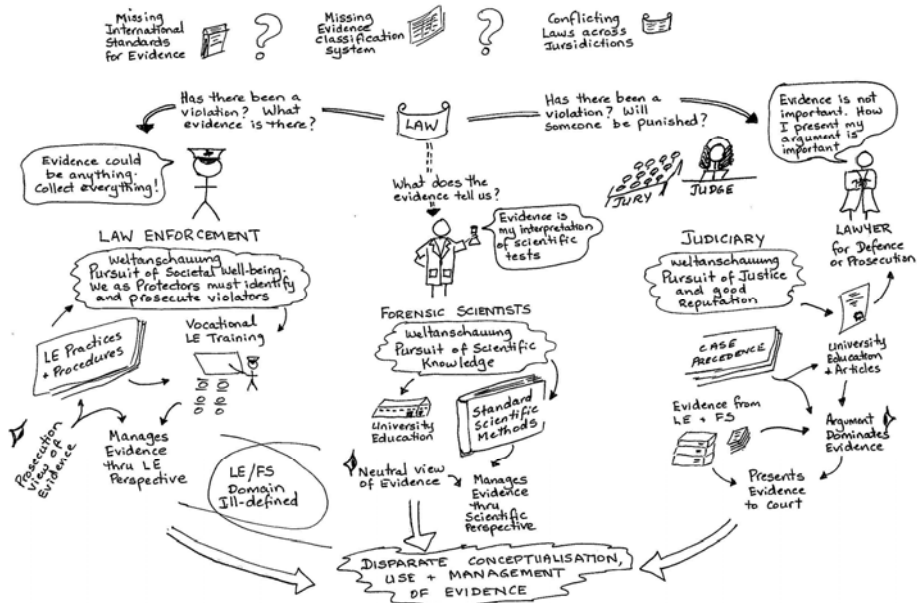 Missing
International
Standards
for Evidence
?
Missing
Evidence
classification
system
?
Conflicting
Laws across
Jursidictions
Has there been a
violation? What
evidence is there?
LAW
Has there been a
violation? Will
someone be punished?
Evidence is not
important. How
I present my
argument is
important
Evidence could
be anything.
Collect everything!
What does the
evidence tell us?
Evidence is
my interpretation
of scientific
tests
JURY
JUDGE
LAWYER
for Defence
or Prosecution
LAW ENFORCEMENT
Weltanschauung
Pursuit of Societal Well-being.
We as Protectors must identify
and prosecute violators
LE Practices
+ Procedures
Vocational
LE Training
Prosecution
view of
Evidence
Manages
Evidence
thru LE
Perspective
LE/FS
Domain
Ill-defined
FORENSIC SCIENTISTS
Weltanschauung
Pursuit of Scientific
Knowledge
University
Education
Standard
Scientific
Methods
Neutral view
of Evidence
Manages
Evidence
thru
Scientific
Perspective
JUDICIARY
Weltanschauung
Pursuit of Justice
and good
Reputation
CASE
PRECEDENCE
University
Education
+ Articles
Evidence from
LE + FS
Argument
Dominates
Evidence
Presents
Evidence
to Court
DISPARATE CONCEPTUALISATION,
USE + MANAGEMENT
OF EVIDENCE